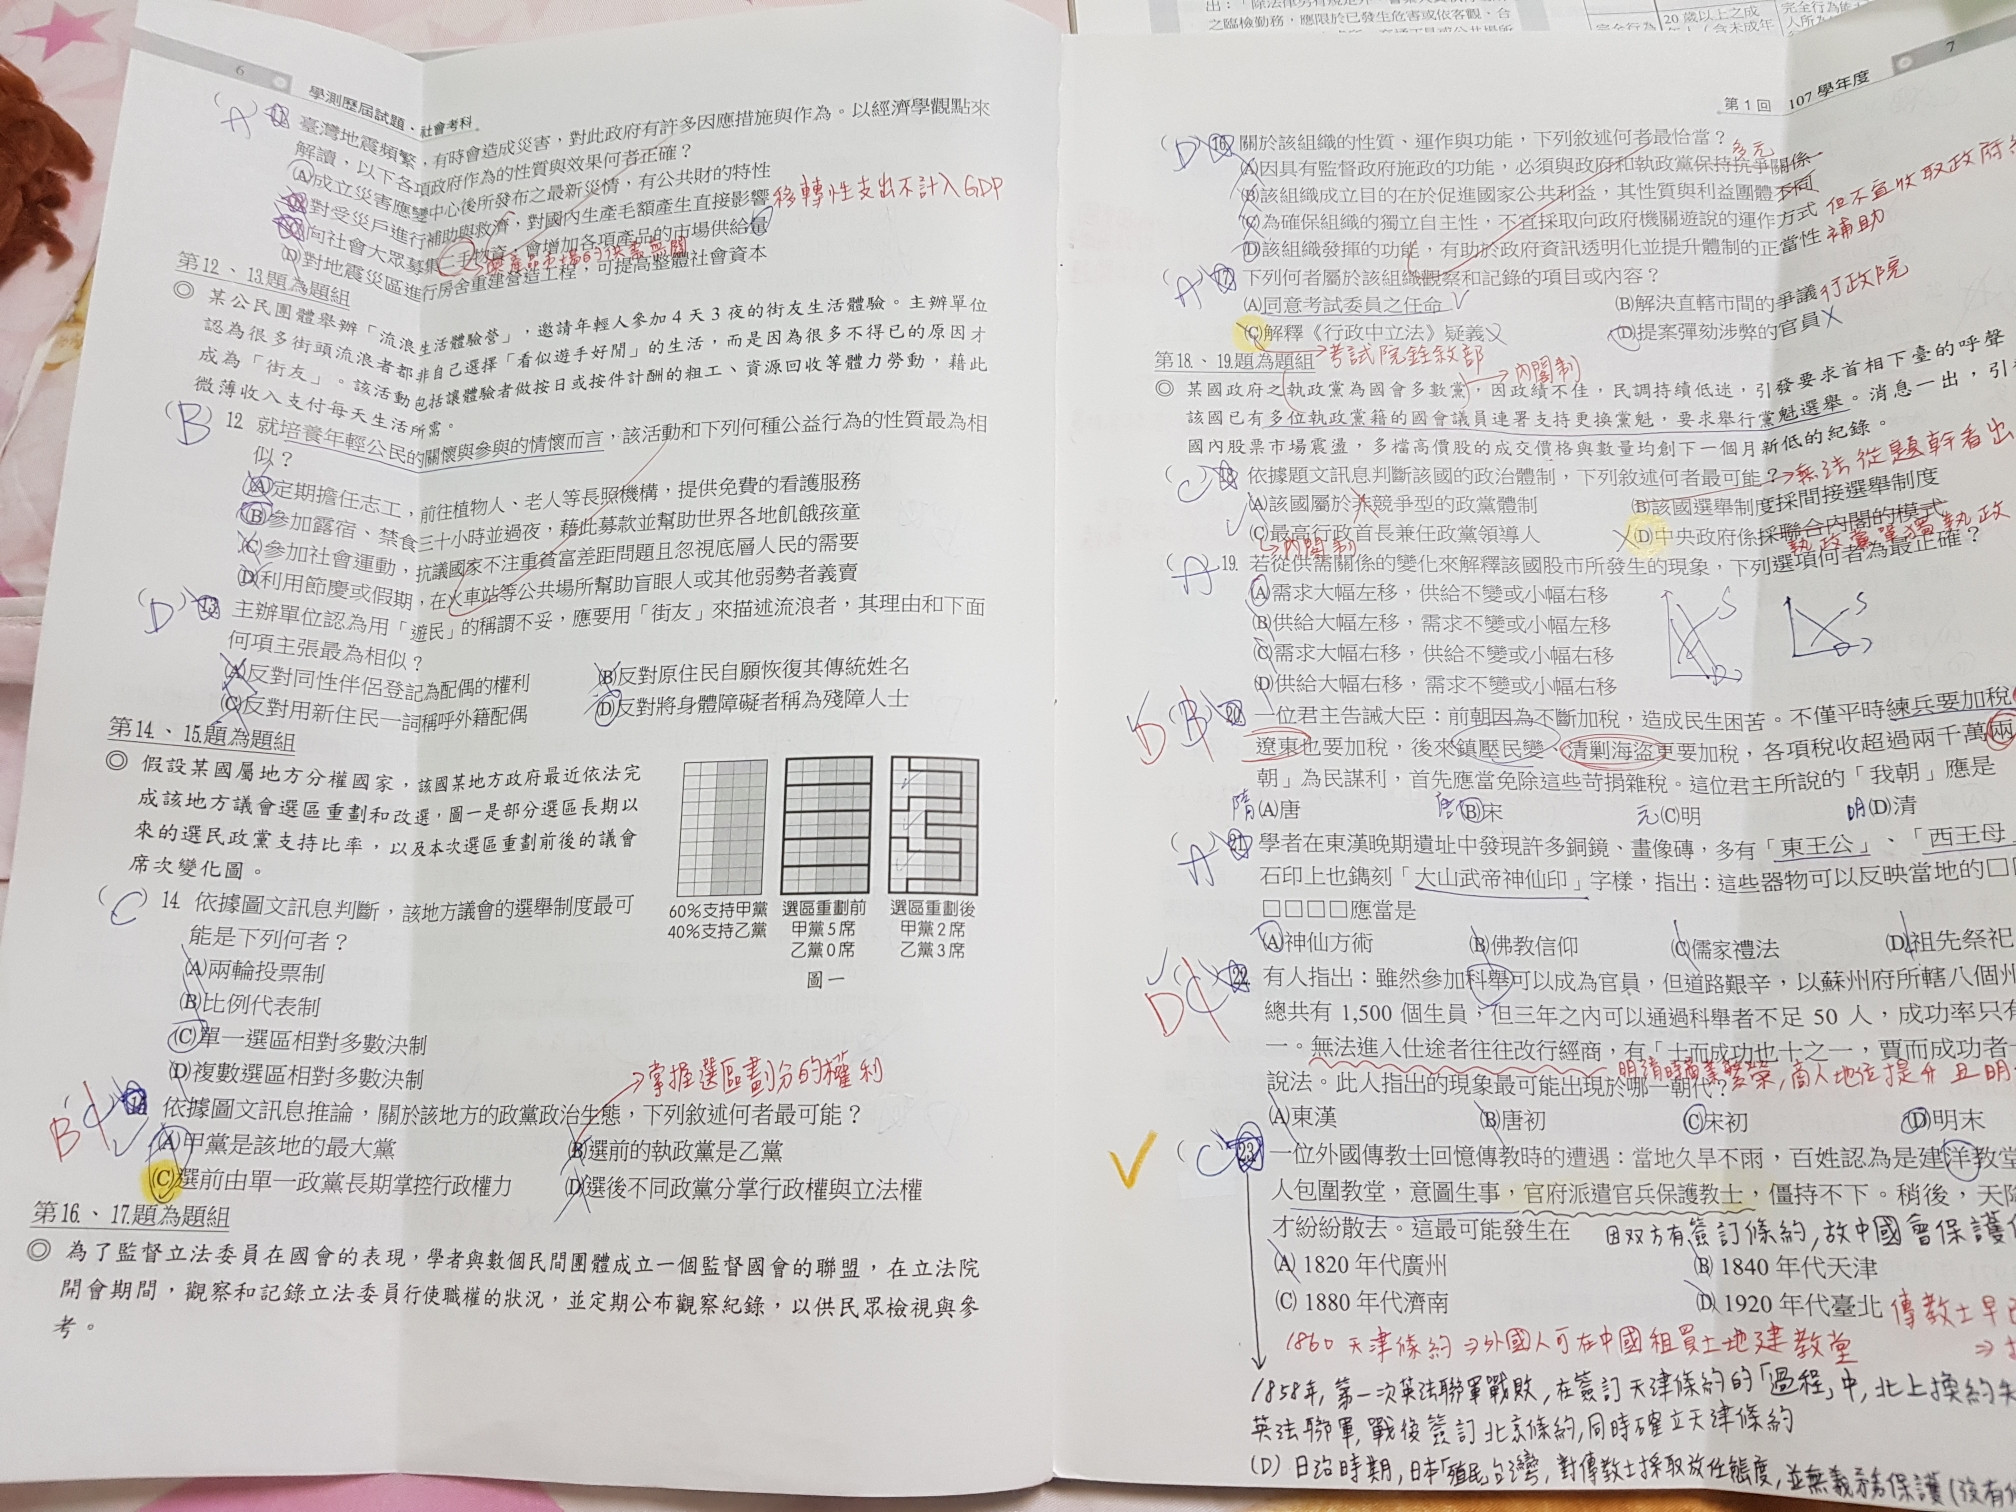 6
學測歷屆試題．社會考科
(A) 11. 臺灣地震頻繁，有時會造成災害，對此政府有許多因應措施與作為。以經濟學觀點來
解讀，以下各項政府作為的性質與效果何者正確？
(A)成立災害應變中心後所發布之最新災情，有公共財的特性
(B)對受災戶進行補助與救濟，對國內生產毛額產生直接影響 移轉性支出不計入GDP
(C)向社會大眾募集二手物資，會增加各項產品的市場供給量
(D)對地震災區進行房舍重建營造工程，可提高整體社會資本
第12、13.題為題組
◎ 某公民團體舉辦「流浪生活體驗營」，邀請年輕人參加4天3夜的街友生活體驗。主辦單位
認為很多街頭流浪者都非自己選擇「看似遊手好閒」的生活，而是因為很多不得已的原因才
成為「街友」。該活動包括讓體驗者做按日或按件計酬的粗工、資源回收等體力勞動，藉此
微薄收入支付每天生活所需。
(B) 12. 就培養年輕公民的關懷與參與的情懷而言，該活動和下列何種公益行為的性質最為相
似？
(A)定期擔任志工，前往植物人、老人等長照機構，提供免費的看護服務
(B)參加露宿、禁食三十小時並過夜，藉此募款並幫助世界各地飢餓孩童
(C)參加社會運動，抗議國家不注重貧富差距問題且忽視底層人民的需要
(D)利用節慶或假期，在火車站等公共場所幫助盲眼人或其他弱勢者義賣
(D) 13. 主辦單位認為用「遊民」的稱謂不妥，應要用「街友」來描述流浪者，其理由和下面
何項主張最為相似？
(A)反對同性伴侶登記為配偶的權利 (B)反對原住民自願恢復其傳統姓名
(C)反對用新住民一詞稱呼外籍配偶 (D)反對將身體障礙者稱為殘障人士
第14、15.題為題組
◎ 假設某國屬地方分權國家，該國某地方政府最近依法完
成該地方議會選區重劃和改選，圖一是部分選區長期以
來的選民政黨支持比率，以及本次選區重劃前後的議會
席次變化圖。
60%支持甲黨 選區重劃前 選區重劃後
40%支持乙黨 甲黨5席 甲黨2席
乙黨0席 乙黨3席
圖一
(C) 14. 依據圖文訊息判斷，該地方議會的選舉制度最可
能是下列何者？
(A)兩輪投票制
(B)比例代表制
(C)單一選區相對多數決制
(D)複數選區相對多數決制
→掌握選區劃分的權利
B (C) 15. 依據圖文訊息推論，關於該地方的政黨政治生態，下列敘述何者最可能？
(A)甲黨是該地的最大黨 (B)選前的執政黨是乙黨
(C)選前由單一政黨長期掌控行政權力 (D)選後不同政黨分掌行政權與立法權
第16.、17.題為題組
◎ 為了監督立法委員在國會的表現，學者與數個民間團體成立一個監督國會的聯盟，在立法院
開會期間，觀察和記錄立法委員行使職權的狀況，並定期公布觀察紀錄，以供民眾檢視與參
考。
出：「除法律另有規定外
之臨檢勤務，應限於已發生危害或依客觀、合
20歲以上之成
第1回 107學年度 7
(D) 16. 關於該組織的性質、運作與功能，下列敘述何者最恰當？ 多元
(A)因具有監督政府施政的功能，必須與政府和執政黨保持抗爭關係
(B)該組織成立目的在於促進國家公共利益，其性質與利益團體不同
(C)為確保組織的獨立自主性，不宜採取向政府機關遊說的運作方式 但不宜收取政府
(D)該組織發揮的功能，有助於政府資訊透明化並提升體制的正當性 補助
(A) 17. 下列何者屬於該組織觀察和記錄的項目或內容？
(A)同意考試委員之任命 (B)解決直轄市間的爭議 行政院
(C)解釋《行政中立法》疑義 (D)提案彈劾涉弊的官員
第18.、19.題為題組 →考試院銓敘部 →內閣制
◎ 某國政府之執政黨為國會多數黨，因政績不佳，民調持續低迷，引發要求首相下臺的呼聲
該國已有多位執政黨籍的國會議員連署支持更換黨魁，要求舉行黨魁選舉。消息一出，引
國內股票市場震盪，多檔高價股的成交價格與數量均創下一個月新低的紀錄。
(C) 18. 依據題文訊息判斷該國的政治體制，下列敘述何者最可能？→無法從題幹看出
(A)該國屬於非競爭型的政黨體制 (B)該國選舉制度採間接選舉制度
(C)最高行政首長兼任政黨領導人 (D)中央政府係採聯合內閣的模式
→內閣制 執政黨單獨執政
(A) 19. 若從供需關係的變化來解釋該國股市所發生的現象，下列選項何者為最正確？
(A)需求大幅左移，供給不變或小幅右移
(B)供給大幅左移，需求不變或小幅左移
(C)需求大幅右移，供給不變或小幅右移
(D)供給大幅右移，需求不變或小幅右移
S D S D
D (B) 20. 一位君主告誡大臣：前朝因為不斷加稅，造成民生困苦。不僅平時練兵要加稅
遼東也要加稅，後來鎮壓民變、清剿海盜更要加稅，各項稅收超過兩千萬兩
朝」為民謀利，首先應當免除這些苛捐雜稅。這位君主所說的「我朝」應是
隋(A)唐 唐(B)宋 元(C)明 明(D)清
(A) 21. 學者在東漢晚期遺址中發現許多銅鏡、畫像磚，多有「東王公」、「西王母
石印上也鐫刻「大山武帝神仙印」字樣，指出：這些器物可以反映當地的□
□□□□應當是
(A)神仙方術 (B)佛教信仰 (C)儒家禮法 (D)祖先祭祀
D (C) 22. 有人指出：雖然參加科舉可以成為官員，但道路艱辛，以蘇州府所轄八個州
總共有 1,500 個生員，但三年之內可以通過科舉者不足 50 人，成功率只有
一。無法進入仕途者往往改行經商，有「士而成功也十之一，賈而成功者
明清時商業繁榮，商人地位提升且明
說法。此人指出的現象最可能出現於哪一朝代？
(A)東漢 (B)唐初 (C)宋初 (D)明末
(C) 23. 一位外國傳教士回憶傳教時的遭遇：當地久旱不雨，百姓認為是建洋教堂
人包圍教堂，意圖生事，官府派遣官兵保護教士，僵持不下。稍後，天降
才紛紛散去。這最可能發生在 因双方有簽訂條約，故中國會保護
(A) 1820 年代廣州 (B) 1840 年代天津
(C) 1880 年代濟南 (D) 1920 年代臺北 傳教士早
1860 天津條約⇒外國人可在中國租買土地建教堂 ⇒
1858年，第一次英法聯軍戰敗，在簽訂天津條約的「過程」中，北上換約
英法聯軍，戰後簽訂北京條約，同時確立天津條約
(D) 日治時期，日本「殖民」台灣，對傳教士採取放任態度，並無義務保護